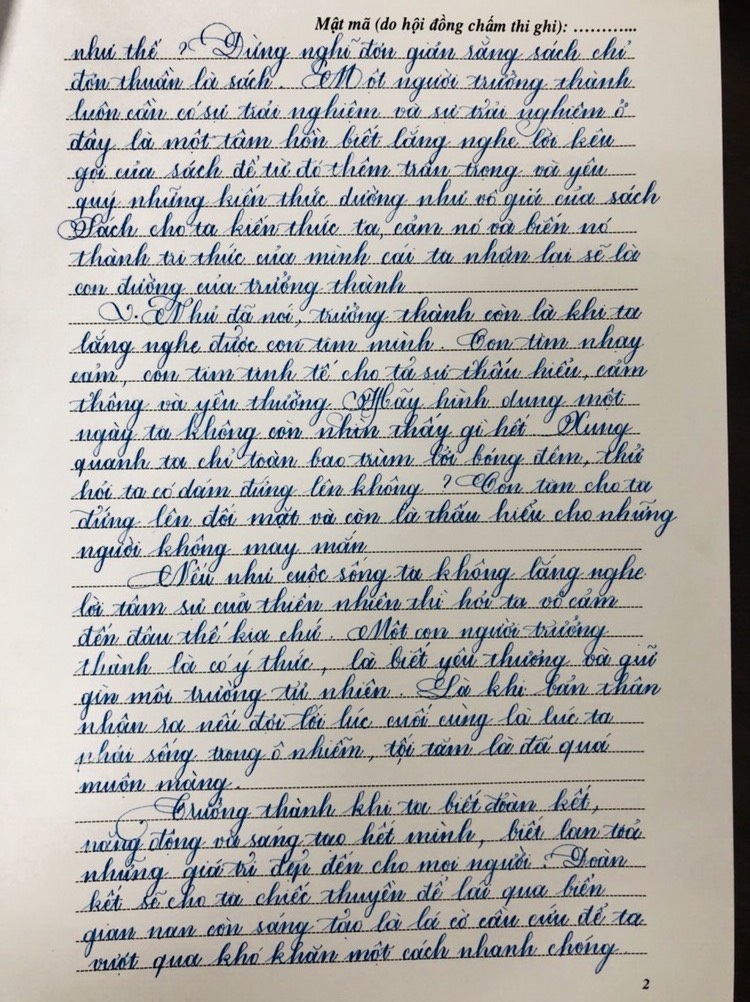 Mật mã (do hội đồng chấm thi ghi): ............
như thế ? Đừng nghĩ đơn giản rằng sách chỉ
đơn thuần là sách. Một người trưởng thành
luôn cần có sự trải nghiệm và sự trải nghiệm ở
đây là một tâm hồn biết lắng nghe lời kêu
gọi của sách để từ đó thêm trân trọng và yêu
quý những kiến thức dường như vô giá của sách
Sách cho ta kiến thức ta, cảm nó và biến nó
thành tri thức của mình cái ta nhận lại sẽ là
con đường của trưởng thành
Như đã nói, trưởng thành còn là khi ta
lắng nghe được con tim mình. Con tim nhạy
cảm, con tim tinh tế cho ta sự thấu hiểu, cảm
thông và yêu thương. Hãy hình dung một
ngày ta không còn nhìn thấy gì hết Xung
quanh ta chỉ toàn bao trùm bởi bóng đêm, thử
hỏi ta có dám đứng lên không ? Con tim cho ta
đứng lên đối mặt và còn là thấu hiểu cho những
người không may mắn
Nếu như cuộc sống ta không lắng nghe
lời tâm sự của thiên nhiên thì hỏi ta vô cảm
đến đâu thế kia chứ. Một con người trưởng
thành là có ý thức, là biết yêu thương và giữ
gìn môi trường tự nhiên. Là khi bản thân
nhận ra nếu đợi tới lúc cuối cùng là lúc ta
phải sống trong ô nhiễm, tối tăm là đã quá
muộn màng.
Trưởng thành khi ta biết đoàn kết,
năng động và sáng tạo hết mình, biết lan toả
những giá trị đẹp đến cho mọi người. Đoàn
kết sẽ cho ta chiếc thuyền để lái qua biển
gian nan còn sáng tạo là lá cờ cầu cứu để ta
vượt qua khó khăn một cách nhanh chóng
2